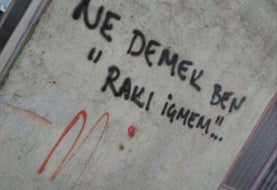 NE DEMEK BEN
" RAKI İÇMEM"...